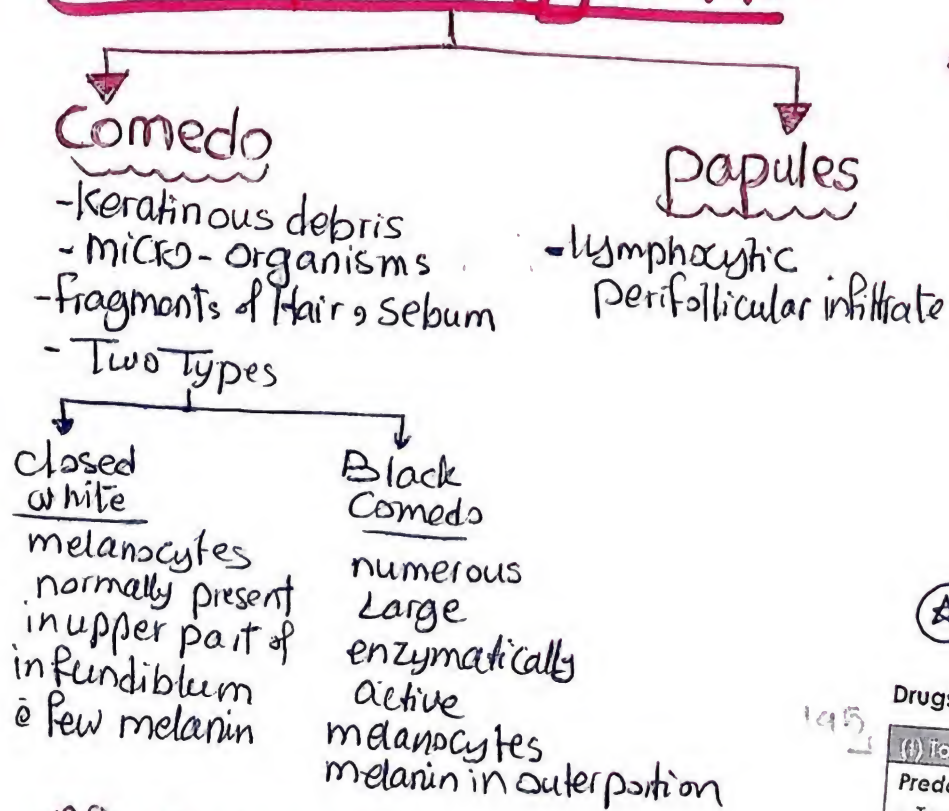 Comedo
-Keratinous debris
- micro-organisms
-fragments of Hair, sebum
- Two Types
closed
white
melanocytes
normally present
in upper part of
infundiblum
ē few melanin
Black
Comedo
numerous
Large
enzymatically
active
melanocytes
melanin in outer portion
papules
-lymphocytic
perifollicular infiltrate
Drugs
195
Pred